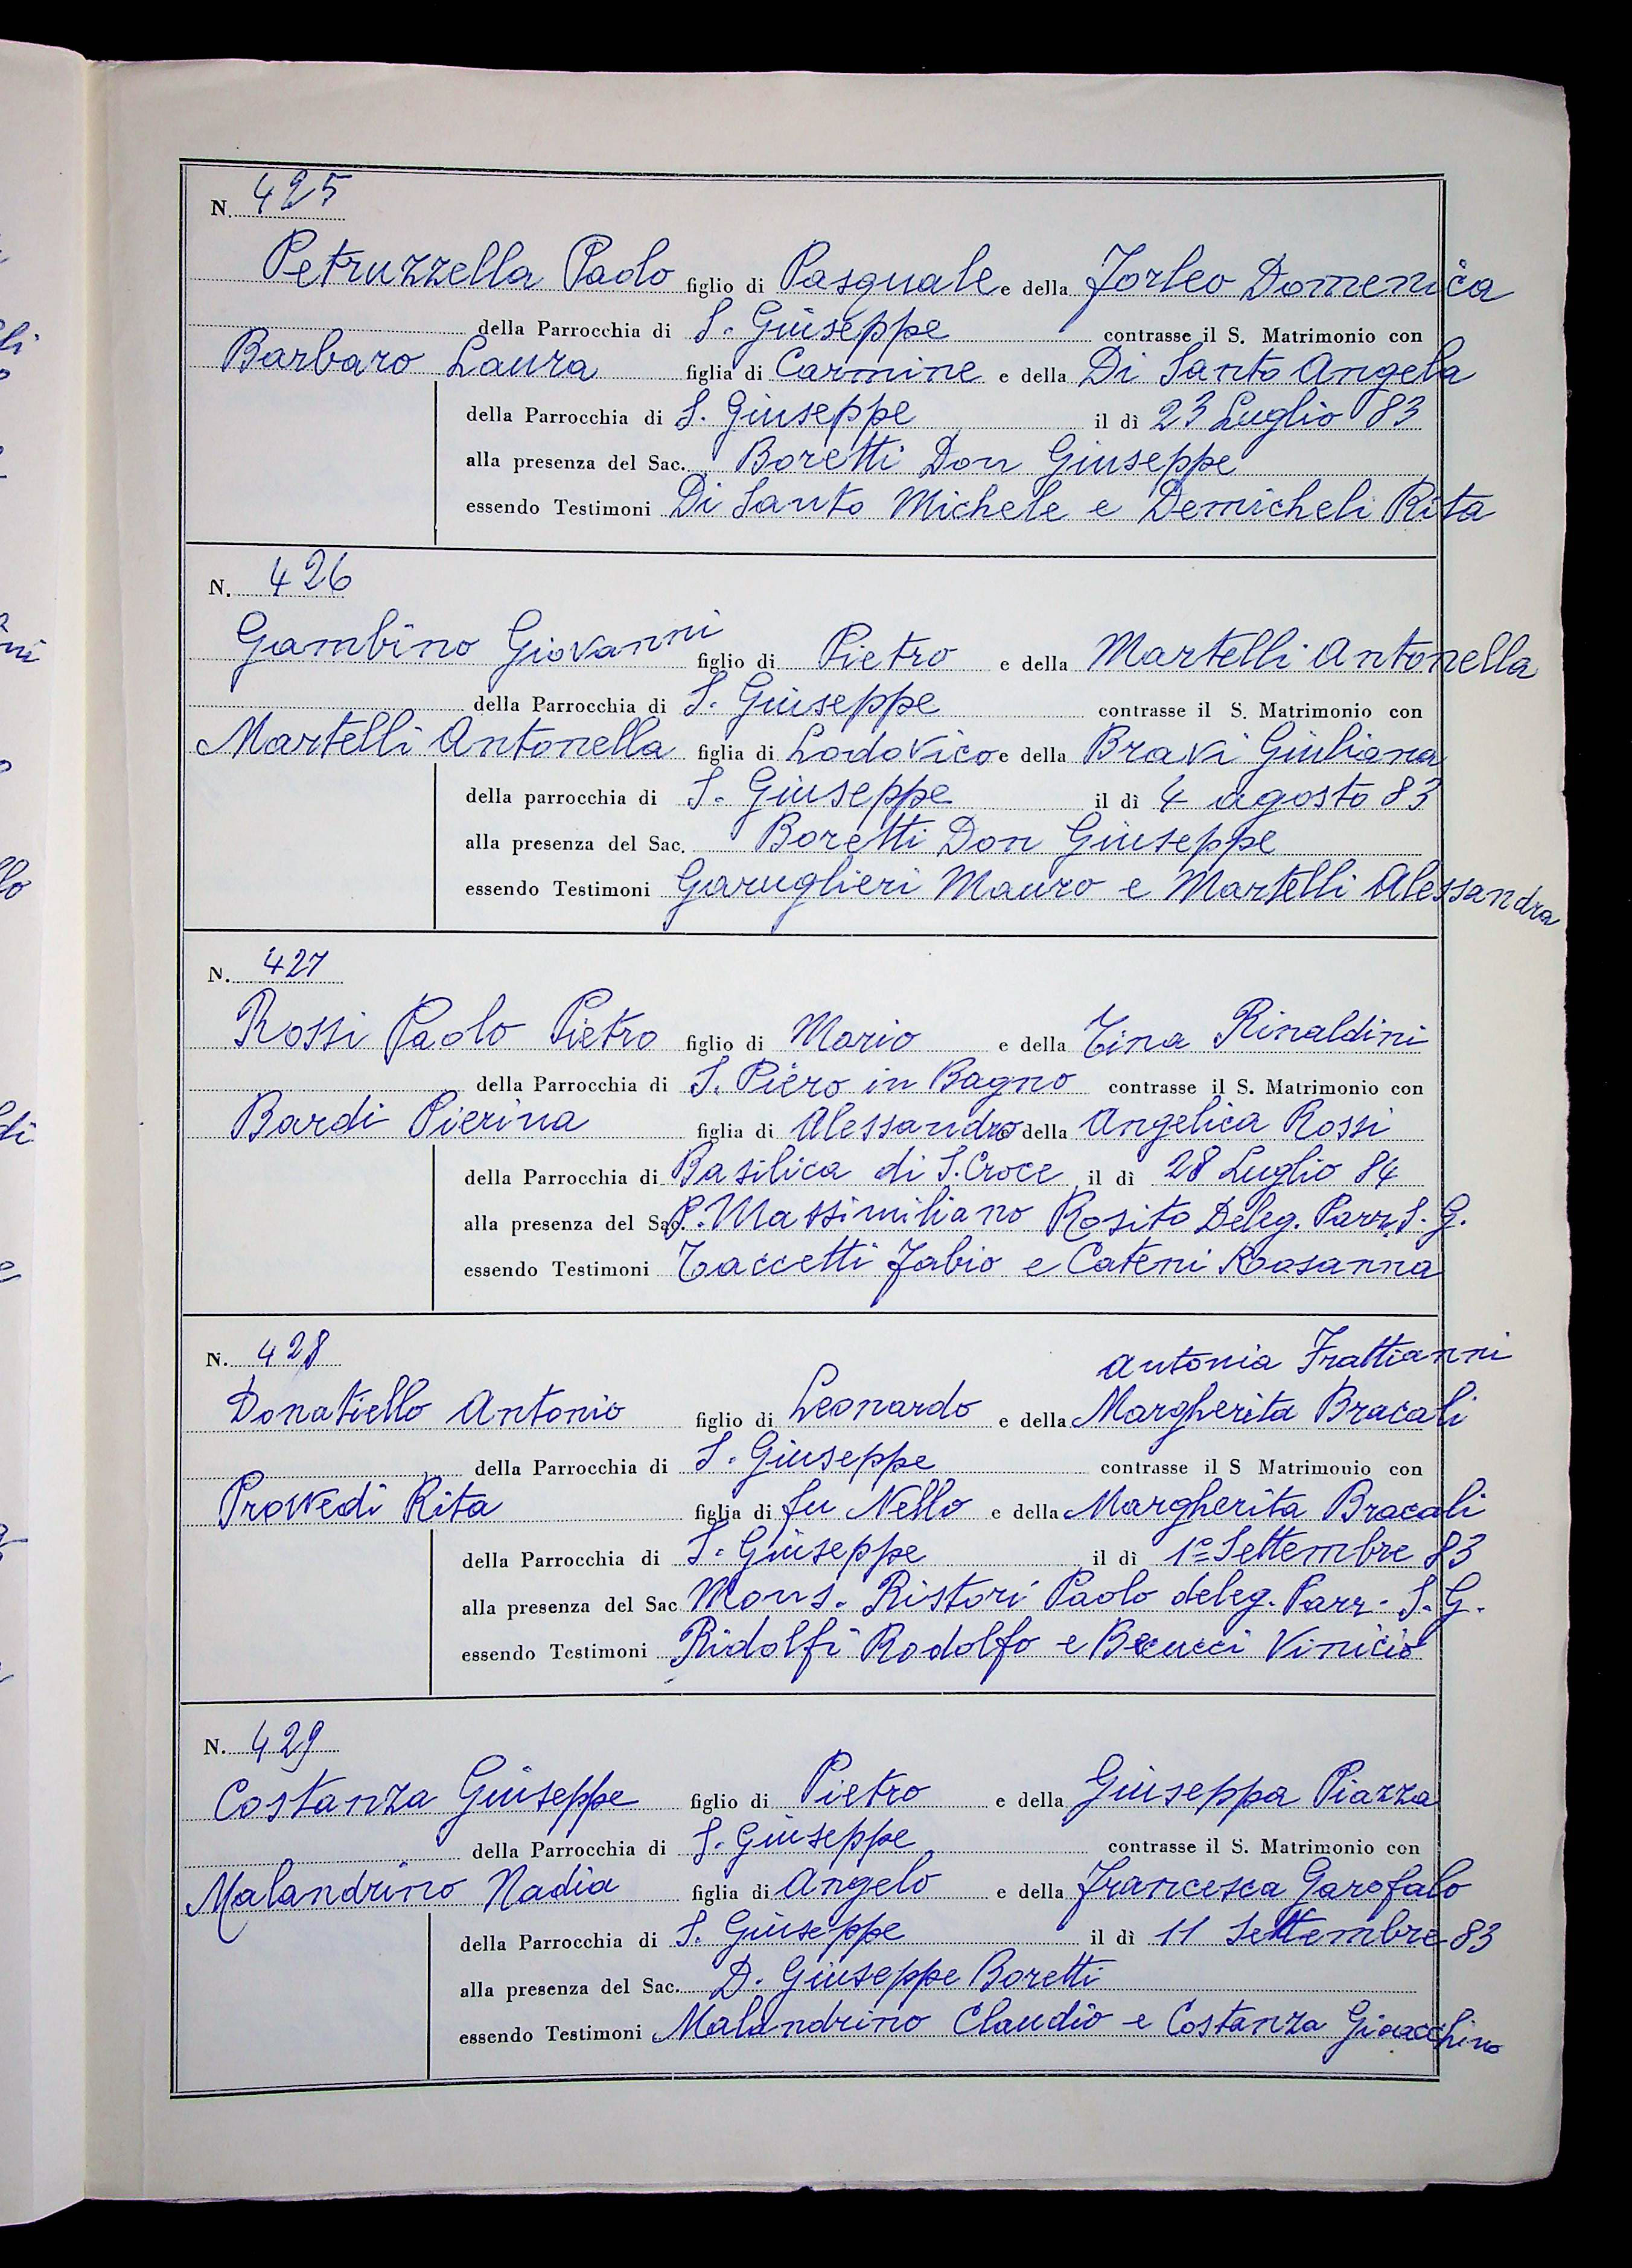 N. 425
Petruzzella Paolo figlio di Pasquale e della Jorleo Domenica
della Parrocchia di S. Giuseppe contrasse il S. Matrimonio con
Barbaro Laura figlia di Carmine e della Di Santo Angela
della Parrocchia di S. Giuseppe il dì 23 Luglio 83
alla presenza del Sac. Boretti Don Giuseppe
essendo Testimoni Di Santo Michele e Demicheli Rita
N. 426
Gambino Giovanni figlio di Pietro e della Martelli Antonella
della Parrocchia di S. Giuseppe contrasse il S. Matrimonio con
Martelli Antonella figlia di Lodovico e della Bravi Giuliana
della parrocchia di S. Giuseppe il dì 4 agosto 83
alla presenza del Sac. Boretti Don Giuseppe
essendo Testimoni Garuglieri Mauro e Martelli Alessandra
N. 427
Rossi Paolo Pietro figlio di Mario e della Tina Rinaldini
della Parrocchia di S. Piero in Bagno contrasse il S. Matrimonio con
Bardi Pierina figlia di Alessandro e della Angelica Rossi
della Parrocchia di Basilica di S. Croce il dì 28 Luglio 84
alla presenza del Sac. P. Massimiliano Rosito Deleg. Parr. S. G.
essendo Testimoni Taccetti Fabio e Cateni Rosanna
N. 428
Antonia Frattianni
Donatiello Antonio figlio di Leonardo e della Margherita Bracali
della Parrocchia di S. Giuseppe contrasse il S Matrimonio con
Provvedi Rita figlia di fu Nello e della Margherita Bracali
della Parrocchia di S. Giuseppe il dì 1º Settembre 83
alla presenza del Sac Mons. Ristori Paolo deleg. Parr. S. G.
essendo Testimoni Ridolfi Rodolfo e Becucci Vinicio
N. 429
Costanza Giuseppe figlio di Pietro e della Giuseppa Piazza
della Parrocchia di S. Giuseppe contrasse il S. Matrimonio con
Malandrino Nadia figlia di Angelo e della Francesca Garofalo
della Parrocchia di S. Giuseppe il dì 11 Settembre 83
alla presenza del Sac. D. Giuseppe Boretti
essendo Testimoni Malandrino Claudio e Costanza Gioacchino